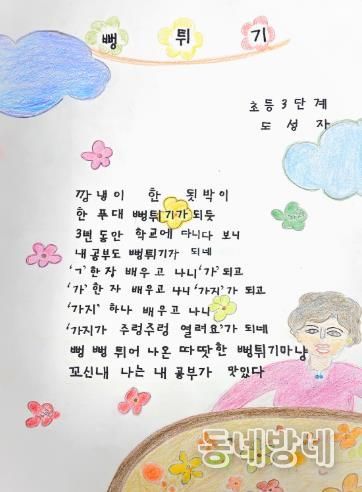 뻥 튀 기
초등 3 단계
도 성 자
깡냉이 한 됫박이
한 푸대 뻥튀기가 되듯
3변 동안 학교에 다니다 보니
내 공부도 뻥튀기가 되네
'ㄱ' 한 자 배우고 나니 '가' 되고
'가' 한 자 배우고 나니 '가지' 가 되고
'가지' 하나 배우고 나니
'가지가 주렁주렁 열려요' 가 되네
뻥 뻥 튀어 나온 따땃한 뻥튀기마냥
꼬신내 나는 내 공부가 맛있다
동네방네